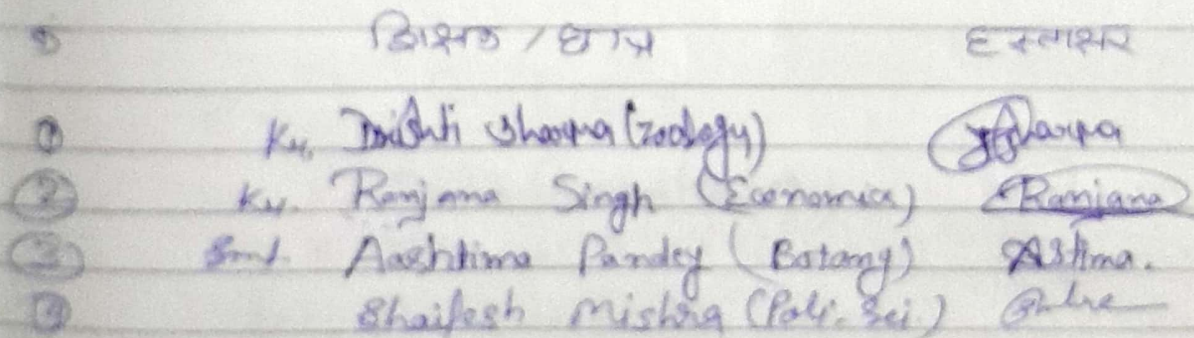 शिक्षक / छात्र हस्ताक्षर
① Ku. Drishti Sharma (Zoology) Sharma
② Ku. Ranjana Singh (Economics) Ranjana
③ Smt. Aashtima Pandey (Botany) Astima.
④ Shailesh Mishra (Poli. Sci.)